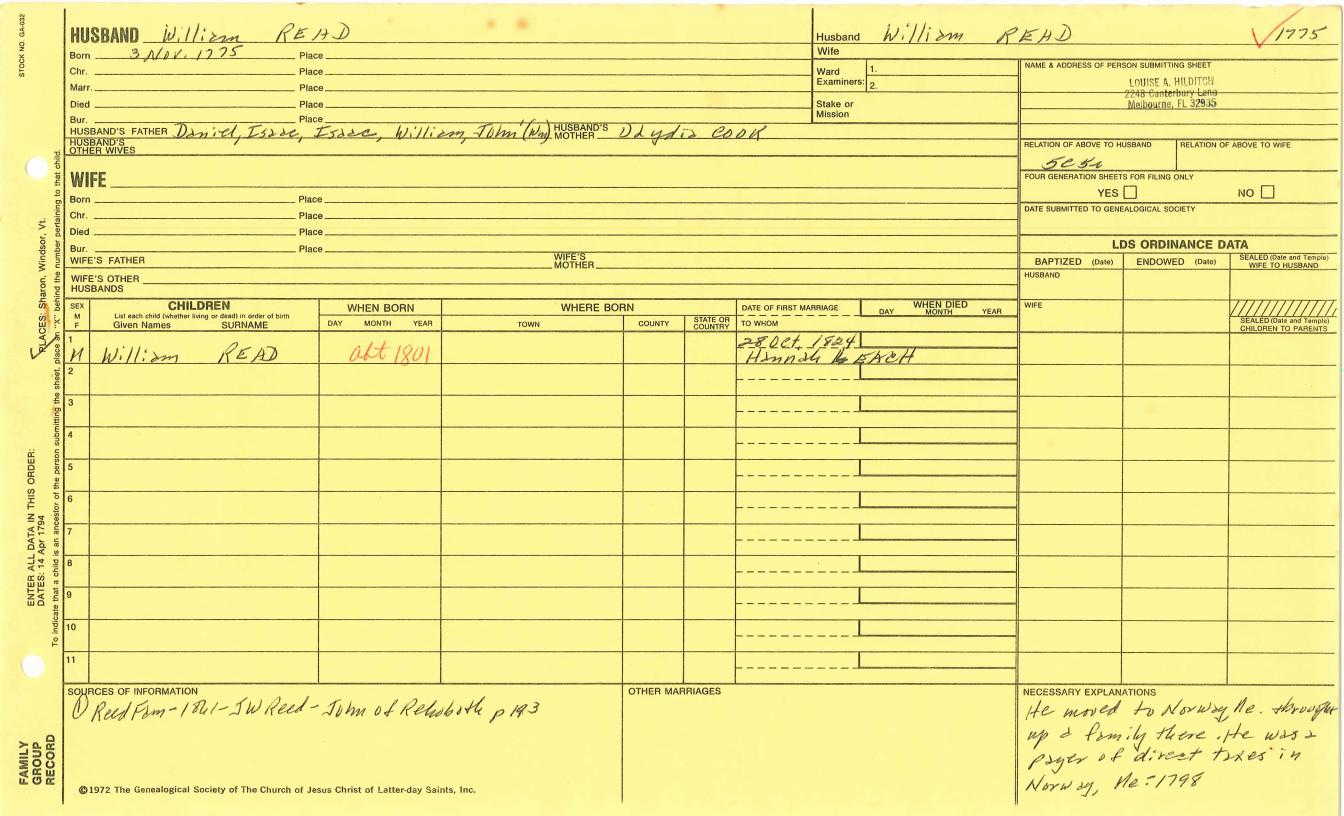 STOCK NO. GA-032
HUSBAND William READ
Born 3 Nov. 1775 Place
Chr. Place
Marr. Place
Died Place
Bur. Place
HUSBAND'S FATHER Daniel, Isaac, Isaac, William, John¹ (Wm) HUSBAND'S MOTHER Lydia COOK
HUSBAND'S OTHER WIVES
Husband William READ 1775
Wife
Ward Examiners: 1.
2.
Stake or Mission
NAME & ADDRESS OF PERSON SUBMITTING SHEET
LOUISE A. HILDITCH
2248 Canterbury Lane
Melbourne, FL 32935
RELATION OF ABOVE TO HUSBAND RELATION OF ABOVE TO WIFE
5c5r
FOUR GENERATION SHEETS FOR FILING ONLY
YES NO
DATE SUBMITTED TO GENEALOGICAL SOCIETY
WIFE
Born Place
Chr. Place
Died Place
Bur. Place
WIFE'S FATHER WIFE'S MOTHER
WIFE'S OTHER HUSBANDS
LDS ORDINANCE DATA
BAPTIZED (Date) ENDOWED (Date) SEALED (Date and Temple) WIFE TO HUSBAND
HUSBAND
WIFE
SEALED (Date and Temple) CHILDREN TO PARENTS
SEX M F
CHILDREN
List each child (whether living or dead) in order of birth
Given Names SURNAME
WHEN BORN
DAY MONTH YEAR
WHERE BORN
TOWN COUNTY STATE OR COUNTRY
DATE OF FIRST MARRIAGE
TO WHOM
WHEN DIED
DAY MONTH YEAR
1 28 Oct. 1824
M William READ abt 1801 Hannah LEACH
2
3
4
5
6
7
8
9
10
11
SOURCES OF INFORMATION
① Reed Fam-1861-JW Reed-John of Rehoboth p 193
OTHER MARRIAGES
NECESSARY EXPLANATIONS
He moved to Norway Me. + brought
up a family there. He was a
payer of direct taxes in
Norway, Me.-1798
©1972 The Genealogical Society of The Church of Jesus Christ of Latter-day Saints, Inc.
FAMILY GROUP RECORD
ENTER ALL DATA IN THIS ORDER:
DATES: 14 Apr 1794 PLACES: Sharon, Windsor, Vt.
To indicate that a child is an ancestor of the person submitting the sheet, place an "X" behind the number pertaining to that child.